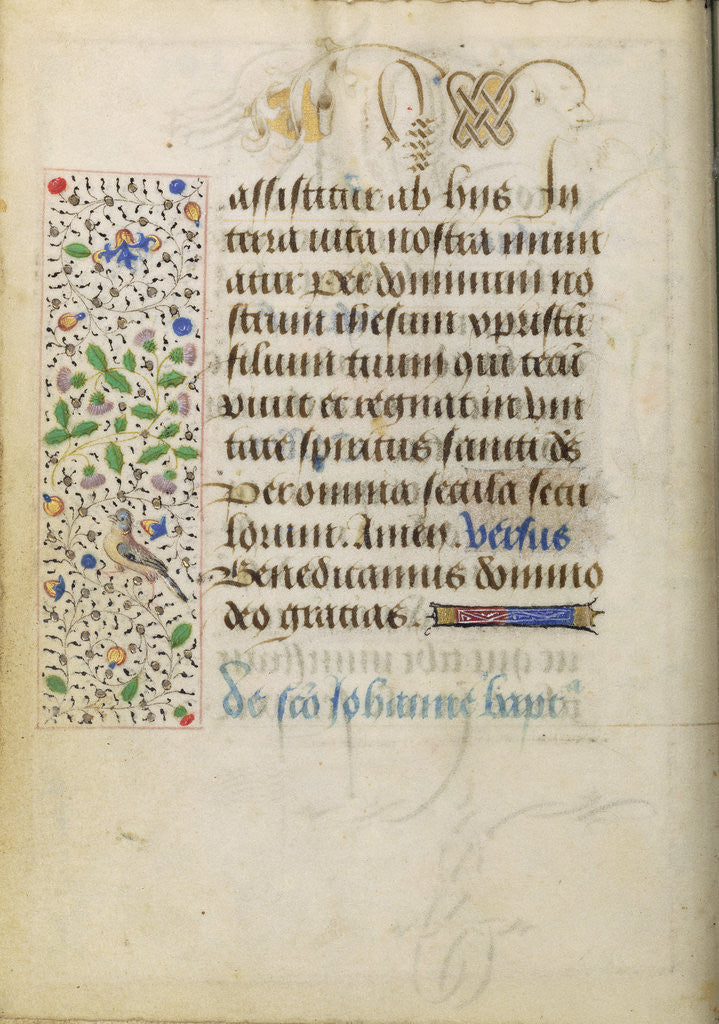 assistitur ab hijs In
terra vita nostra muni
atur Per dominum no
strum ihesum xpristū
filium tuum qui tecū
viuit et regnat in vni
tate spiritus sancti ds̄
Per omnia secula secu
lorum. Amen. Versus
Benedicamus domino
deo gracias.
De sc̄o Iohanne bapt̄a